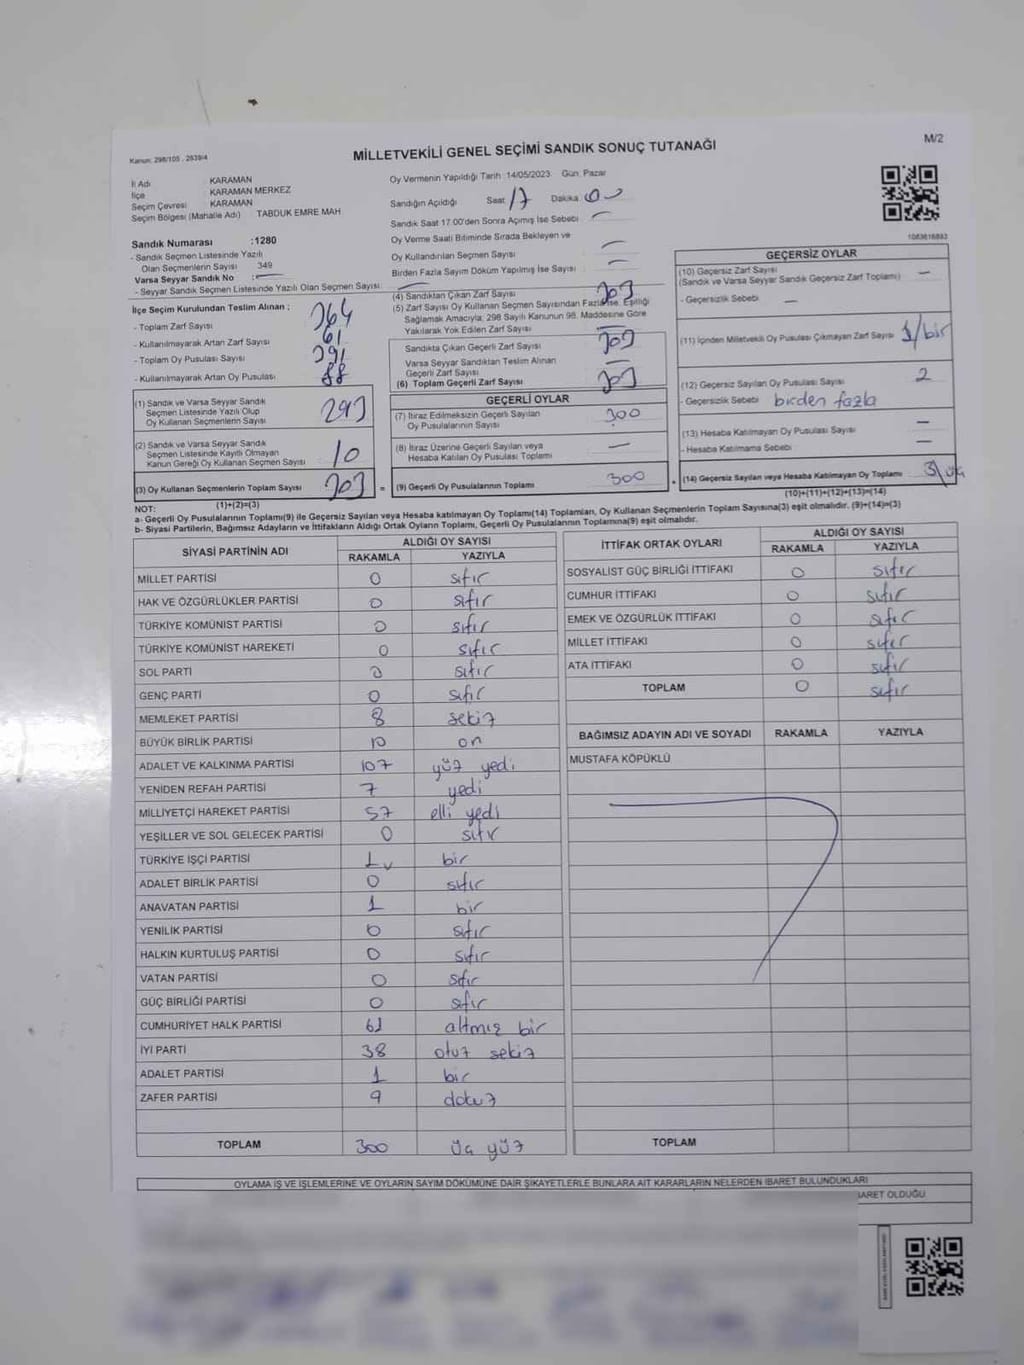 Kanun: 298/105 , 2839/4
M/2
MİLLETVEKİLİ GENEL SEÇİMİ SANDIK SONUÇ TUTANAĞI
İl Adı : KARAMAN
İlçe : KARAMAN MERKEZ
Seçim Çevresi : KARAMAN
Seçim Bölgesi (Mahalle Adı) : TABDUK EMRE MAH
Sandık Numarası :1280
- Sandık Seçmen Listesinde Yazılı
Olan Seçmenlerin Sayısı : 349
Varsa Seyyar Sandık No :
- Seyyar Sandık Seçmen Listesinde Yazılı Olan Seçmen Sayısı:
Oy Vermenin Yapıldığı Tarih :14/05/2023 Gün: Pazar
Sandığın Açıldığı Saat 17 Dakika 00
Sandık Saat 17.00'den Sonra Açımış İse Sebebi
Oy Verme Saati Bitiminde Sırada Bekleyen ve
Oy Kullandırılan Seçmen Sayısı
Birden Fazla Sayım Döküm Yapılmış İse Sayısı
1063616893
İlçe Seçim Kurulundan Teslim Alınan ;
- Toplam Zarf Sayısı 364
- Kullanılmayarak Artan Zarf Sayısı 61
- Toplam Oy Pusulası Sayısı 391
- Kullanılmayarak Artan Oy Pusulası 88
(1) Sandık ve Varsa Seyyar Sandık
Seçmen Listesinde Yazılı Olup
Oy Kullanan Seçmenlerin Sayısı 293
(2) Sandık ve Varsa Seyyar Sandık
Seçmen Listesinde Kayıtlı Olmayan
Kanun Gereği Oy Kullanan Seçmen Sayısı 10
(3) Oy Kullanan Seçmenlerin Toplam Sayısı 303
(1)+(2)=(3)
(4) Sandıktan Çıkan Zarf Sayısı 303
(5) Zarf Sayısı Oy Kullanan Seçmen Sayısından Fazla ise, Eşitliği
Sağlamak Amacıyla; 298 Sayılı Kanunun 98. Maddesine Göre
Yakılarak Yok Edilen Zarf Sayısı
Sandıkta Çıkan Geçerli Zarf Sayısı 303
Varsa Seyyar Sandıktan Teslim Alınan
Geçerli Zarf Sayısı
(6) Toplam Geçerli Zarf Sayısı 303
GEÇERLİ OYLAR
(7) İtiraz Edilmeksizin Geçerli Sayılan
Oy Pusulalarının Sayısı 300
(8) İtiraz Üzerine Geçerli Sayılan veya
Hesaba Katılan Oy Pusulası Toplamı —
= (9) Geçerli Oy Pusulalarının Toplamı 300
GEÇERSİZ OYLAR
(10) Geçersiz Zarf Sayısı —
(Sandık ve Varsa Seyyar Sandık Geçersiz Zarf Toplamı)
- Geçersizlik Sebebi —
(11) İçinden Milletvekili Oy Pusulası Çıkmayan Zarf Sayısı 1/bir
(12) Geçersiz Sayılan Oy Pusulası Sayısı 2
- Geçersizlik Sebebi birden fazla
(13) Hesaba Katılmayan Oy Pusulası Sayısı —
- Hesaba Katılmama Sebebi —
+ (14) Geçersiz Sayılan veya Hesaba Katılmayan Oy Toplamı 3/üç
(10)+(11)+(12)+(13)=(14)
NOT:
a- Geçerli Oy Pusulalarının Toplamı(9) ile Geçersiz Sayılan veya Hesaba katılmayan Oy Toplamı(14) Toplamları, Oy Kullanan Seçmenlerin Toplam Sayısına(3) eşit olmalıdır. (9)+(14)=(3)
b- Siyasi Partilerin, Bağımsız Adayların ve İttifakların Aldığı Ortak Oyların Toplamı, Geçerli Oy Pusulalarının Toplamına(9) eşit olmalıdır.
SİYASİ PARTİNİN ADI ALDIĞI OY SAYISI
RAKAMLA YAZIYLA
MİLLET PARTİSİ 0 sıfır
HAK VE ÖZGÜRLÜKLER PARTİSİ 0 sıfır
TÜRKİYE KOMÜNİST PARTİSİ 0 sıfır
TÜRKİYE KOMÜNİST HAREKETİ 0 sıfır
SOL PARTİ 0 sıfır
GENÇ PARTİ 0 sıfır
MEMLEKET PARTİSİ 8 sekiz
BÜYÜK BİRLİK PARTİSİ 10 on
ADALET VE KALKINMA PARTİSİ 107 yüz yedi
YENİDEN REFAH PARTİSİ 7 yedi
MİLLİYETÇİ HAREKET PARTİSİ 57 elli yedi
YEŞİLLER VE SOL GELECEK PARTİSİ 0 sıfır
TÜRKİYE İŞÇİ PARTİSİ 1 bir
ADALET BİRLİK PARTİSİ 0 sıfır
ANAVATAN PARTİSİ 1 bir
YENİLİK PARTİSİ 0 sıfır
HALKIN KURTULUŞ PARTİSİ 0 sıfır
VATAN PARTİSİ 0 sıfır
GÜÇ BİRLİĞİ PARTİSİ 0 sıfır
CUMHURİYET HALK PARTİSİ 61 altmış bir
İYİ PARTİ 38 otuz sekiz
ADALET PARTİSİ 1 bir
ZAFER PARTİSİ 9 dokuz
TOPLAM 300 üç yüz
İTTİFAK ORTAK OYLARI ALDIĞI OY SAYISI
RAKAMLA YAZIYLA
SOSYALİST GÜÇ BİRLİĞİ İTTİFAKI 0 sıfır
CUMHUR İTTİFAKI 0 sıfır
EMEK VE ÖZGÜRLÜK İTTİFAKI 0 sıfır
MİLLET İTTİFAKI 0 sıfır
ATA İTTİFAKI 0 sıfır
TOPLAM 0 sıfır
BAĞIMSIZ ADAYIN ADI VE SOYADI RAKAMLA YAZIYLA
MUSTAFA KÖPÜKLÜ
TOPLAM
OYLAMA İŞ VE İŞLEMLERİNE VE OYLARIN SAYIM DÖKÜMÜNE DAİR ŞİKAYETLERLE BUNLARA AİT KARARLARIN NELERDEN İBARET BULUNDUKLARI
BARET OLDUĞU